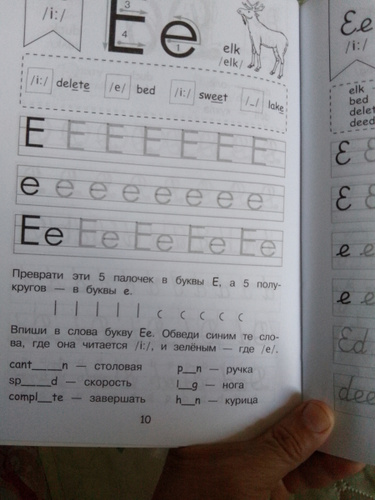 /i:/
3
4
1
Ee
elk
/elk/
/i:/ delete /e/ bed /i:/ sweet /_/ lake
E E E E E E E
e e e e e e e e
Ee Ee Ee Ee Ee
Преврати эти 5 палочек в буквы E, а 5 полу-
кругов — в буквы e.
| | | | | c c c c c
Впиши в слова букву Ee. Обведи синим те сло-
ва, где она читается /i:/, и зелёным — где /e/.
cant____n — столовая p__n — ручка
sp____d — скорость l__g — нога
compl__te — завершать h__n — курица
10
Ee
/i:/
elk
bed
delet
deed
E E
E E
e e
e e
Ed
dee